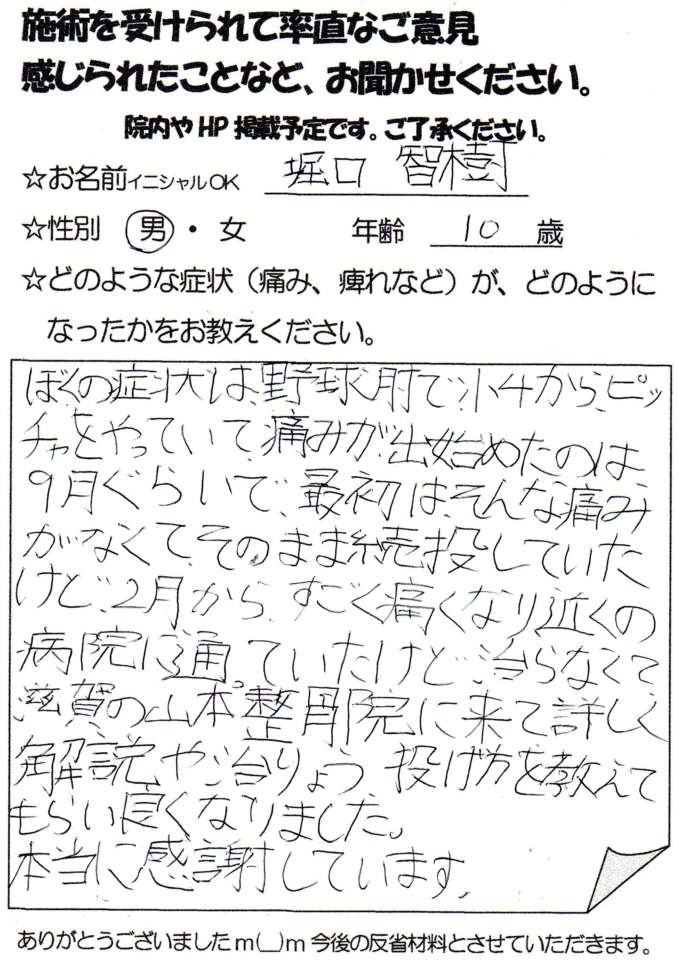 施術を受けられて率直なご意見
感じられたことなど、お聞かせください。
院内やHP掲載予定です。ご了承ください。
☆お名前イニシャルOK 堀口 智樹
☆性別 男・女 年齢 10 歳
☆どのような症状（痛み、痺れなど）が、どのように
なったかをお教えください。
ぼくの症状は、野球肘で、小4から、ピッ
チャをやっていて、痛みが出始めたのは、
9月ぐらいで、最初は、そんな痛み
がなくて、そのまま続投していた
けど、2月から、すごく痛くなり近くの
病院に通ていたけど、治らなくて
滋賀の山本整骨院に来て詳しく
解説や治りょう、投げ方を教えて
もらい良くなりました。
本当に感謝しています。
ありがとうございましたm(__)m今後の反省材料とさせていただきます。